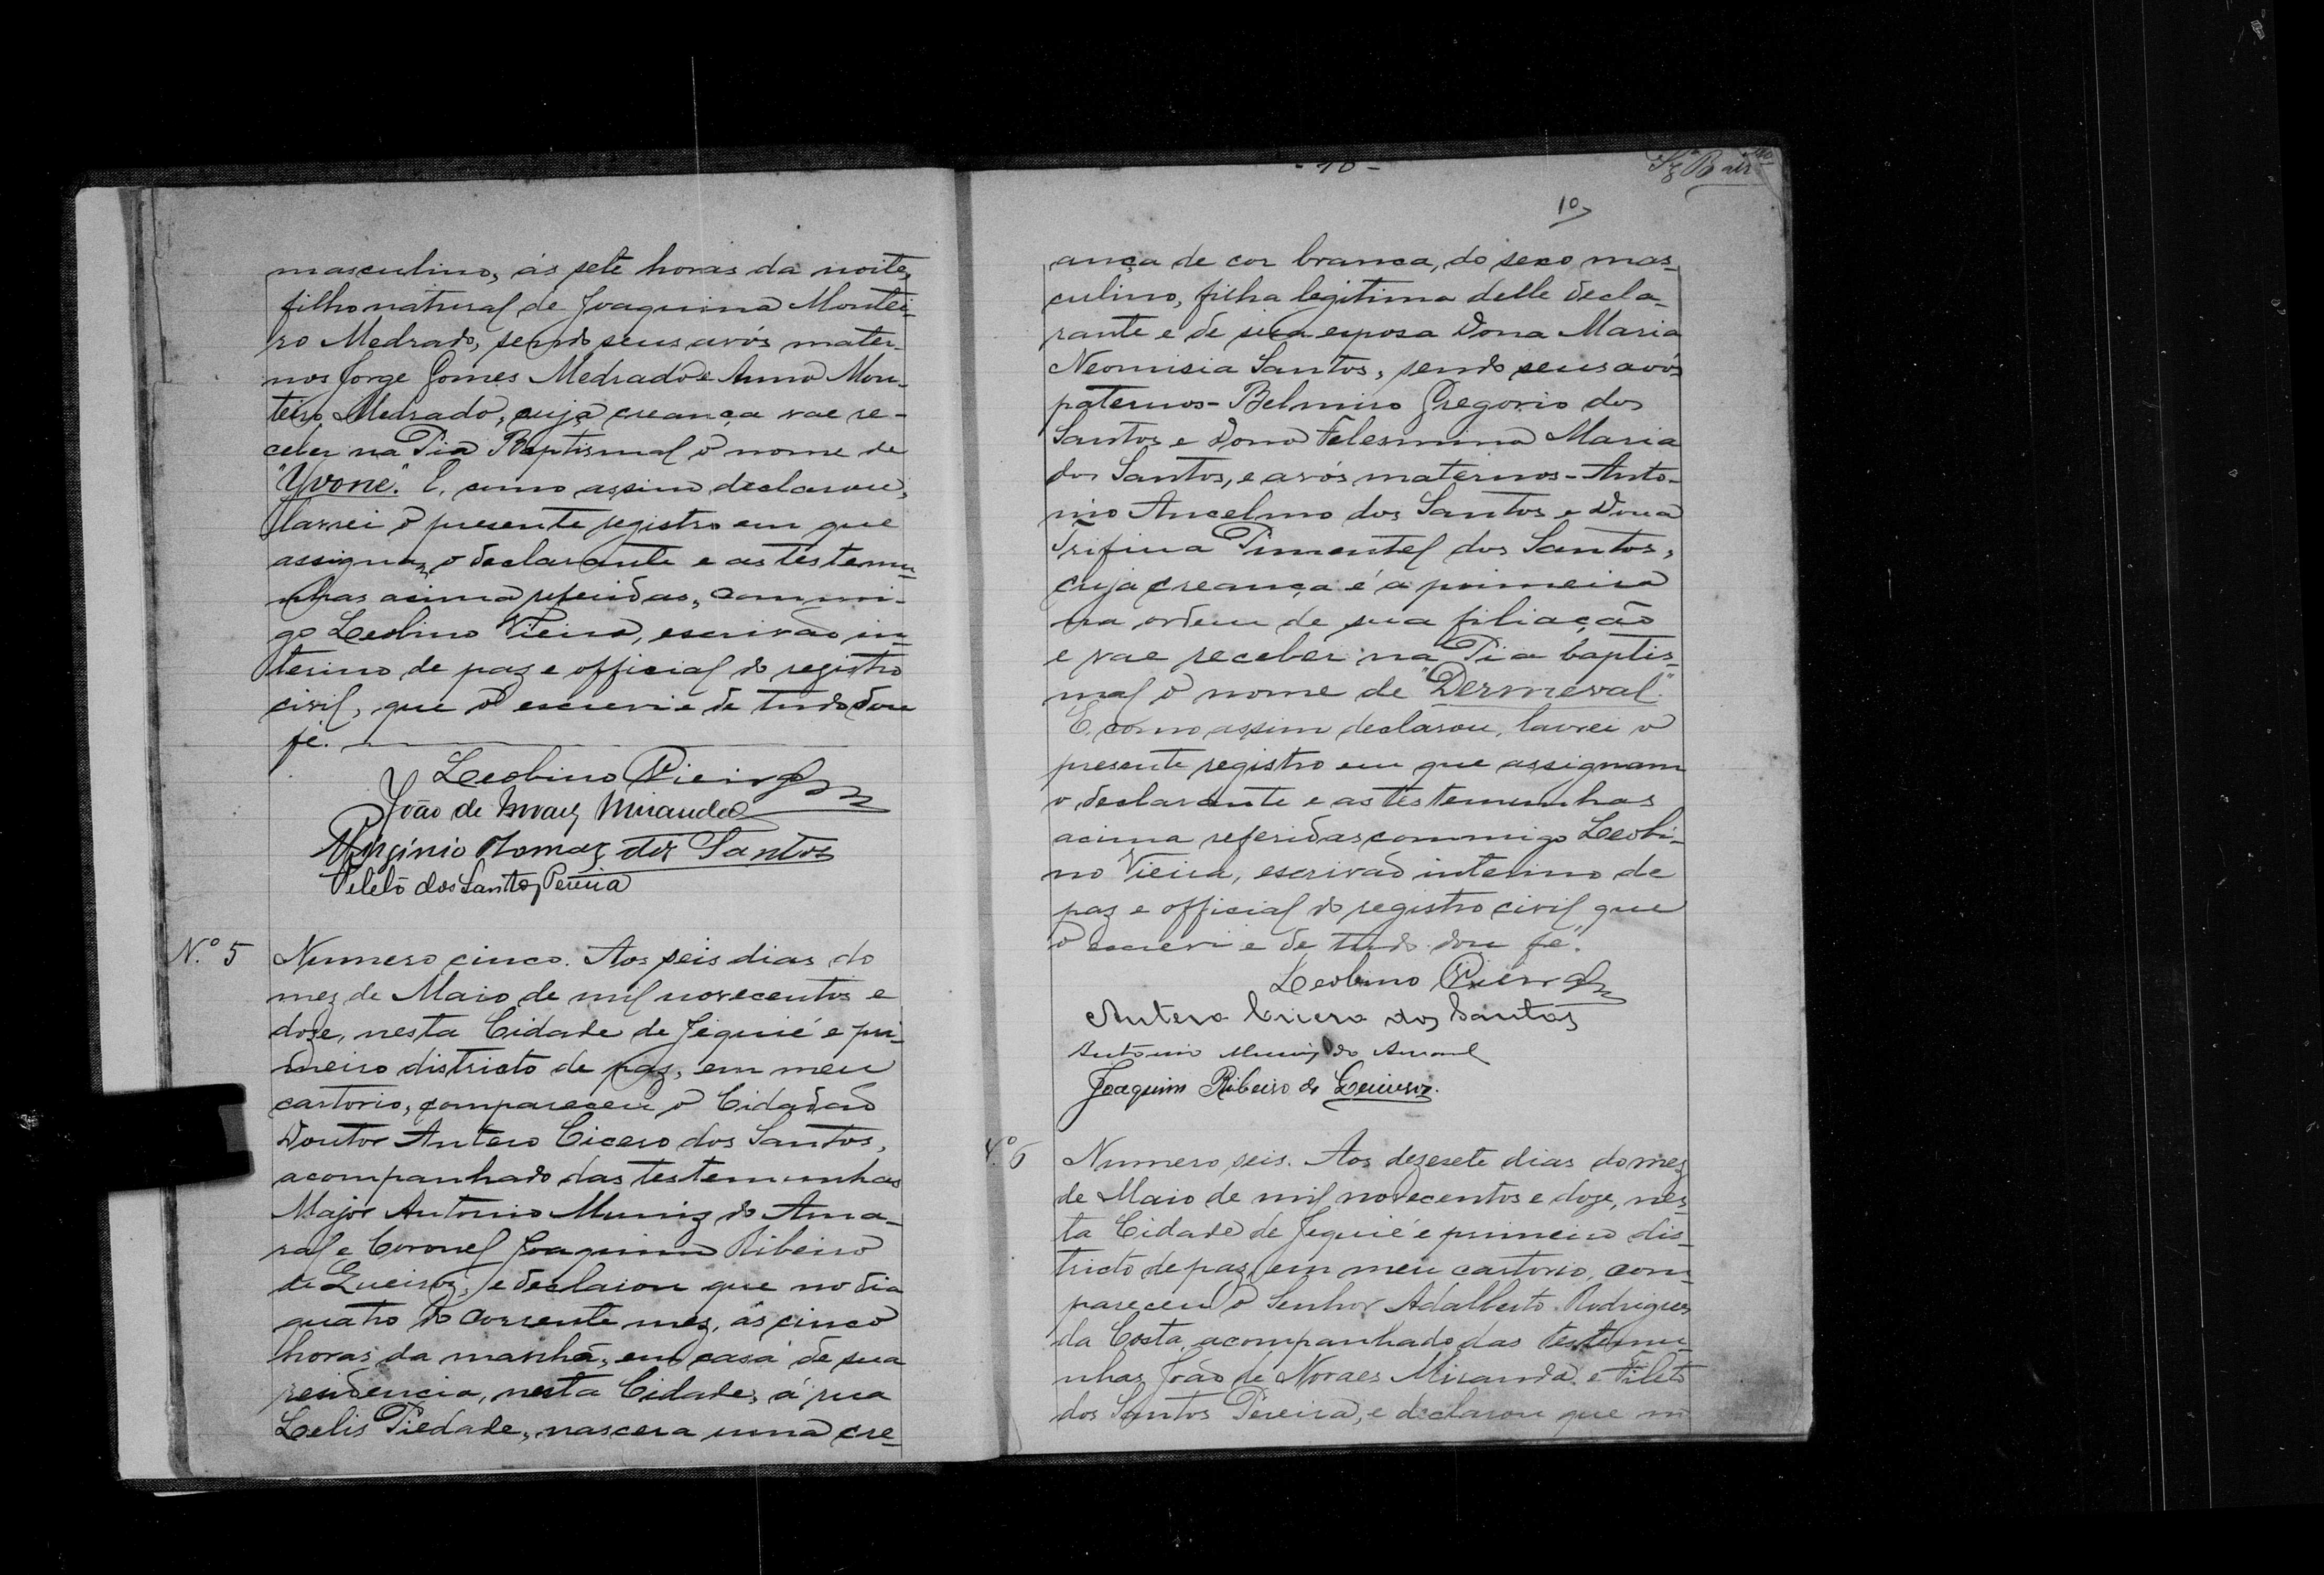 masculino, ás sete horas da noite,
filho natural de Joaquina Montei-
ro Medrado, sendo seus avós mater-
nos Jorge Gomes Medrado e Anna Mon-
teiro Medrado, cuja creança vae re-
ceber na Pia Baptismal o nome de
"Yvone". E, como assim declarou,
lavrei o presente registro em que
assignam o declarante e as testemu-
nhas acima referidas, commi-
go Leobino Vieira, escrivão in-
terino de paz e official do registro
civil, que o escrevi e de tudo dou
fé.
Leobino Vieira
João de Novaes Miranda
Virginio Thomaz dos Santos
Fileto dos Santos Pereira
N.º 5 Numero cinco. Aos seis dias do
mez de Maio de mil novecentos e
doze, nesta Cidade de Jequié e pri-
meiro districto de paz, em meu
cartorio, compareceu o Cidadão
Doutor Antero Cicero dos Santos,
acompanhado das testemunhas
Major Antonio Muniz do Ama-
ral e Coronel Joaquim Ribeiro
de Queiroz, e declarou que no dia
quatro do corrente mez, ás cinco
horas da manhã, em casa de sua
residencia, nesta Cidade, á rua
Lelis Piedade, nascera uma cre-
- 10 -
10
ança de cor branca, do sexo mas-
culino, filha legitima delle decla-
rante e de sua esposa Dona Maria
Neomisia Santos, sendo seus avós
paternos - Belmiro Gregorio dos
Santos e Dona Felesmina Maria
dos Santos, e avós maternos - Anto-
nio Ancelmo dos Santos e Dona
Trifina Pimentel dos Santos,
cuja creança é a primeira
na ordem de sua filiação
e vae receber na Pia baptis-
mal o nome de "Dermeval".
E, como assim declarou, lavrei o
presente registro em que assignam
o declarante e as testemunhas
acima referidas commigo Leobi-
no Vieira, escrivão interino de
paz e official do registro civil que
o escrevi e de tudo dou fé.
Leobino Vieira
Antero Cicero dos Santos
Antonio Muniz do Amaral
Joaquim Ribeiro de Queiroz.
N.º 6 Numero seis. Aos dezesete dias do mez
de Maio de mil novecentos e doze, nes-
ta Cidade de Jequié e primeiro dis-
tricto de paz, em meu cartorio, com-
pareceu o Senhor Adalberto Rodrigues
da Costa, acompanhado das testemu-
nhas João de Novaes Miranda e Fileto
dos Santos Pereira, e declarou que no